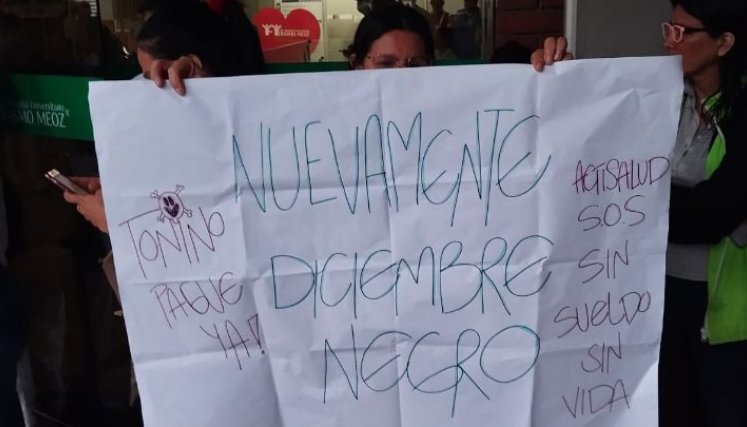 ERASMO MEOZ
NUEVAMENTE
DICIEMBRE
NEGRO
TONINO
PAGUE
YA!
ACTISALUD
S.O.S
SIN
SUELDO
SIN
VIDA